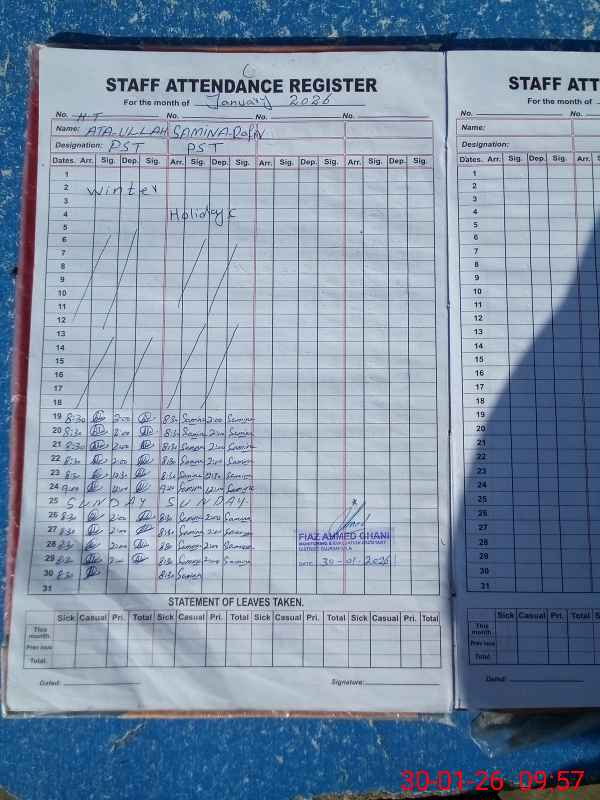 STAFF ATTENDANCE REGISTER
For the month of January 2026
No. H.T No. No. No.
Name: ATA-ULLAH SAMINA
Designation: PST PST
Dates. Arr. Sig. Dep. Sig. Arr. Sig. Dep. Sig. Arr. Sig. Dep. Sig. Arr. Sig. Dep. Sig.
1
2 Winter
3
4 Holidays
5
6
7
8
9
10
11
12
13
14
15
16
17
18
19 8:30 2:00 8:30 Samina 2:00 Samina
20 8:30 2:00 8:30 Samina 2:00 Samina
21 8:30 2:00 8:30 Samina 2:00 Samina
22 8:30 2:00 8:30 Samina 2:00 Samina
23 8:30 12:30 8:30 Samina 12:30 Samina
24 9:00 12:00 9:00 Samina 12:00 Samina
25 SUNDAY SUNDAY
26 8:30 2:00 8:30 Samina 2:00 Samina
27 8:30 2:00 8:30 Samina 2:00 Samina
28 8:30 2:00 8:30 Samina 2:00 Samina
29 8:30 2:00 8:30 Samina 2:00 Samina
30 8:30 8:30 Samina
31
FIAZ AHMED GHANI
MONITORING & EVALUATION ASSISTANT
DATE: 30-01-2026
STATEMENT OF LEAVES TAKEN.
Sick Casual Pri. Total Sick Casual Pri. Total Sick Casual Pri. Total Sick Casual Pri. Total
This month
Prev now
Total.
Dated: Signature:
STAFF ATT
For the month of
No. No.
Name:
Designation:
Dates. Arr. Sig. Dep. Sig. Arr. Sig.
1
2
3
4
5
6
7
8
9
10
11
12
13
14
15
16
17
18
19
20
21
22
23
24
25
26
27
28
29
30
31
Sick Casual Pri. Total Sick
This month
Prev now
Total.
Dated:
30-01-26 09:57